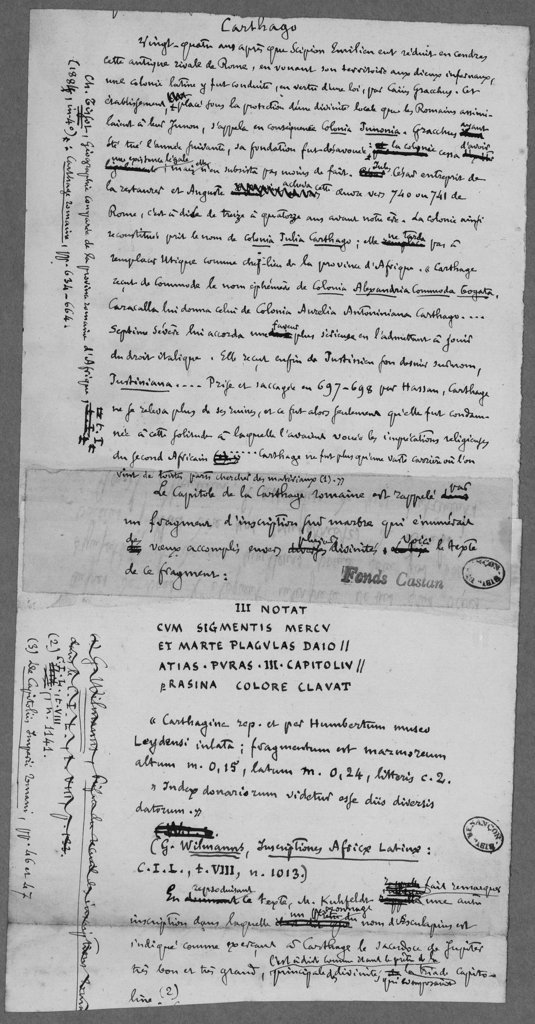 Carthago
Vingt-quatre ans après que Scipion Emilien eut réduit en cendres
cette antique rivale de Rome, en vouant son territoire aux dieux infernaux,
une colonie latine y fut conduite, en vertu d'une loi, par Caius Gracchus. Cet
établissement, placé sous la protection d'une divinité locale que les Romains assimi-
laient à leur Junon, s'appela en conséquence Colonia Junonia. Gracchus ayant
été tué l'année suivante, sa fondation fut désavouée: la colonie cessa d'avoir
une existence légale, mais n'en subsista pas moins de fait. Jul. César entreprit de
la restaurer et Auguste acheva cette œuvre vers 740 ou 741 de
Rome, c'est à dire de treize à quatorze ans avant notre ère. La colonie ainsi
reconstituée prit le nom de Colonia Julia Carthago; elle ne tarda pas à
remplacer Utique comme chef-lieu de la province d'Afrique. « Carthage
reçut de Commode le nom éphémère de Colonia Alexandria Commoda Togata.
Caracalla lui donna celui de Colonia Aurelia Antoniniana Carthago....
Septime Sévère lui accorda une faveur plus sérieuse en l'admettant à jouir
du droit italique. Elle reçut enfin de Justinien son dernier surnom,
Justiniana.... Prise et saccagée en 697-698 par Hassan, Carthage
ne se releva plus de ses ruines, et ce fut alors seulement qu'elle fut condam-
née à cette solitude à laquelle l'avaient vouée les imprécations religieuses
du second Africain .... Carthage ne fut plus qu'une vaste carrière où l'on
vint de toutes parts chercher des matériaux (1). »
Ch. Tissot, Géographie comparée de la province romaine d'Afrique, t. I
(1884, in-4°), Carthage romaine, pp. 634-664.
Le Capitole de la Carthage romaine est rappelé par
un fragment d'inscription sur marbre qui énumérait
des vœux accomplis envers plusieurs divinités. Voici le texte
de ce fragment:
Fonds Castan
III NOTAT
CVM SIGMENTIS MERCV
ET MARTE PLAGVLAS DAIO//
ATIAS · PVRAS · III · CAPITOLIV//
PRASINA COLORE CLAVAT
« Carthagine rep. et per Humbertum museo
Leydensi inlata; fragmentum est marmoreum
altum m. 0,15, latum m. 0,24, litteris c. 2.
» Index donariorum videtur esse diis diversis
datorum. »
(G. Wilmanns, Inscriptiones Africæ Latinæ:
C.I.L., t. VIII, n. 1013.)
En reproduisant ce texte, M. Kuhfeldt fait remarquer une autre
inscription dans laquelle un personnage du nom d'Æsculapius est
indiqué comme exerçant à Carthage le sacerdoce de Jupiter
très bon et très grand, c'est à dire comme étant le prêtre de la
principale des divinités qui composaient la triade capito-
line. (2)
(2) C.I.L., t. VIII, n. 1141.
(3) De Capitoliis Imperii Romani, pp. 46 et 47